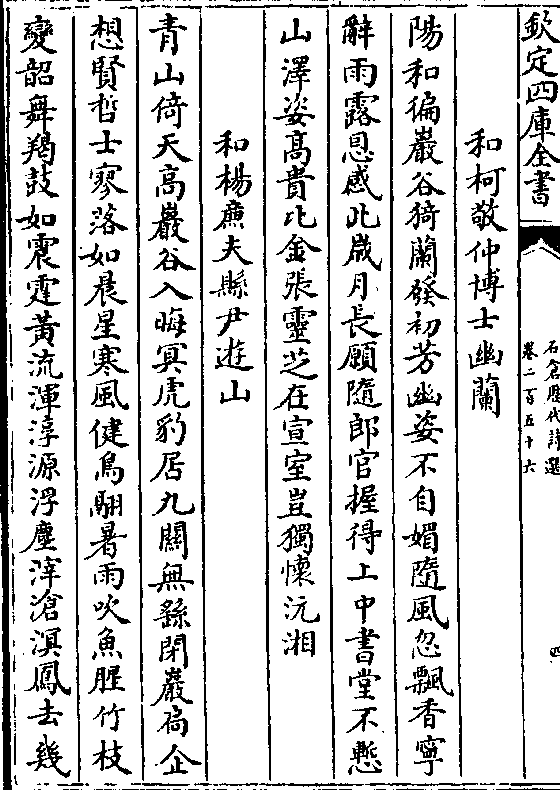 欽定四庫全書
石倉歷代詩選
卷二百五十六
四
和柯敬仲博士幽蘭
陽和徧巖谷猗蘭發初芳幽姿不自媚隨風忽飄香寧
辭雨露恩感此歲月長願隨郎官握得上中書堂不慙
山澤姿高貴比金張靈芝在宣室豈獨懷沅湘
和楊廉夫縣尹遊山
青山倚天高巖谷入晦冥虎豹居九關無繇閉巖扃企
想賢哲士寥落如晨星寒風健馬駉暑雨吹魚腥竹枝
變韶舞羯鼓如震霆黃流渾淳源浮塵滓滄溟鳳去幾